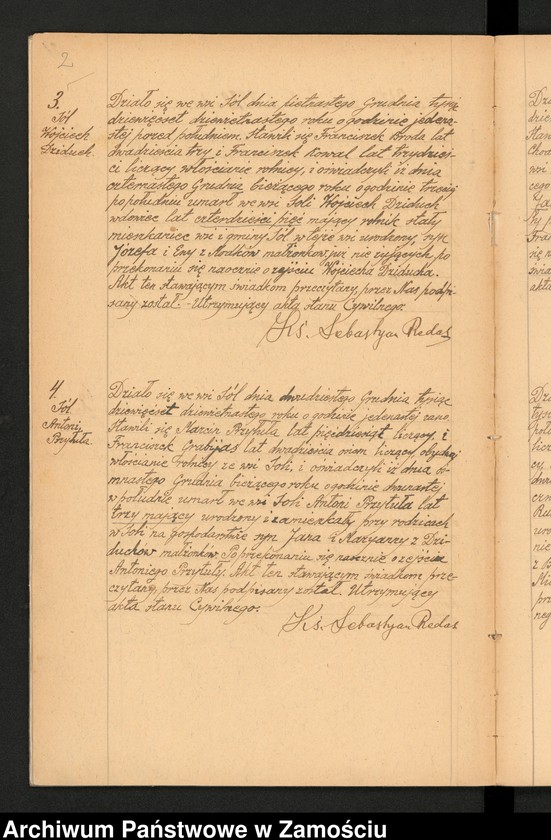 2
3.
Sól
Wojciech
Dziduch.
Działo się we wsi Sól dnia piętnastego Grudnia tysiąc
dziewięćset dziewiętnastego roku o godzinie jedena-
stej przed południem. Stawili się Franciszek Broda lat
dwadzieścia trzy i Franciszek Kowal lat trzydzieś-
ci liczący włościanie rolnicy, i oświadczyli iż dnia
czternastego Grudnia bieżącego roku o godzinie trzeciej
po południu umarł we wsi Soli Wojciech Dziduch
wdowiec lat czterdzieści pięć mający rolnik stały
mieszkaniec wsi i gminy Sól w tejże wsi urodzony, syn
Józefa i Ewy z małżonków już nie żyjących po
przekonaniu się naocznie o zejściu Wojciecha Dziducha.
Akt ten stawającym świadkom przeczytany, przez Nas podpi-
sany został. - Utrzymujący akta stanu Cywilnego:
Ks. Sebastyan Redas
4.
Sól.
Antoni
Przytuła.
Działo się we wsi Sól dnia dwudziestego Grudnia tysiąc
dziewięćset dziewiętnastego roku o godzinie jedenastej rano.
Stawili się Marcin Przytuła lat pięćdziesiąt liczący, i
Franciszek Grabijas lat dwadzieścia osiem liczący, obydwaj
włościanie rolnicy ze wsi Soli, i oświadczyli iż dnia o-
mnastego Grudnia bieżącego roku o godzinie dwunastej
w południe umarł we wsi Soli Antoni Przytuła lat
trzy mający urodzony i zamieszkały przy rodzicach
w Soli na gospodarstwie syn Jana i Maryanny z Dzi-
duchów małżonków. Po przekonaniu się naocznie o zejściu
Antoniego Przytuły. Akt ten stawającym świadkom prze-
czytany, przez Nas podpisany został. Utrzymujący
akta stanu Cywilnego:
Ks. Sebastyan Redas
Archiwum Państwowe w Zamościu